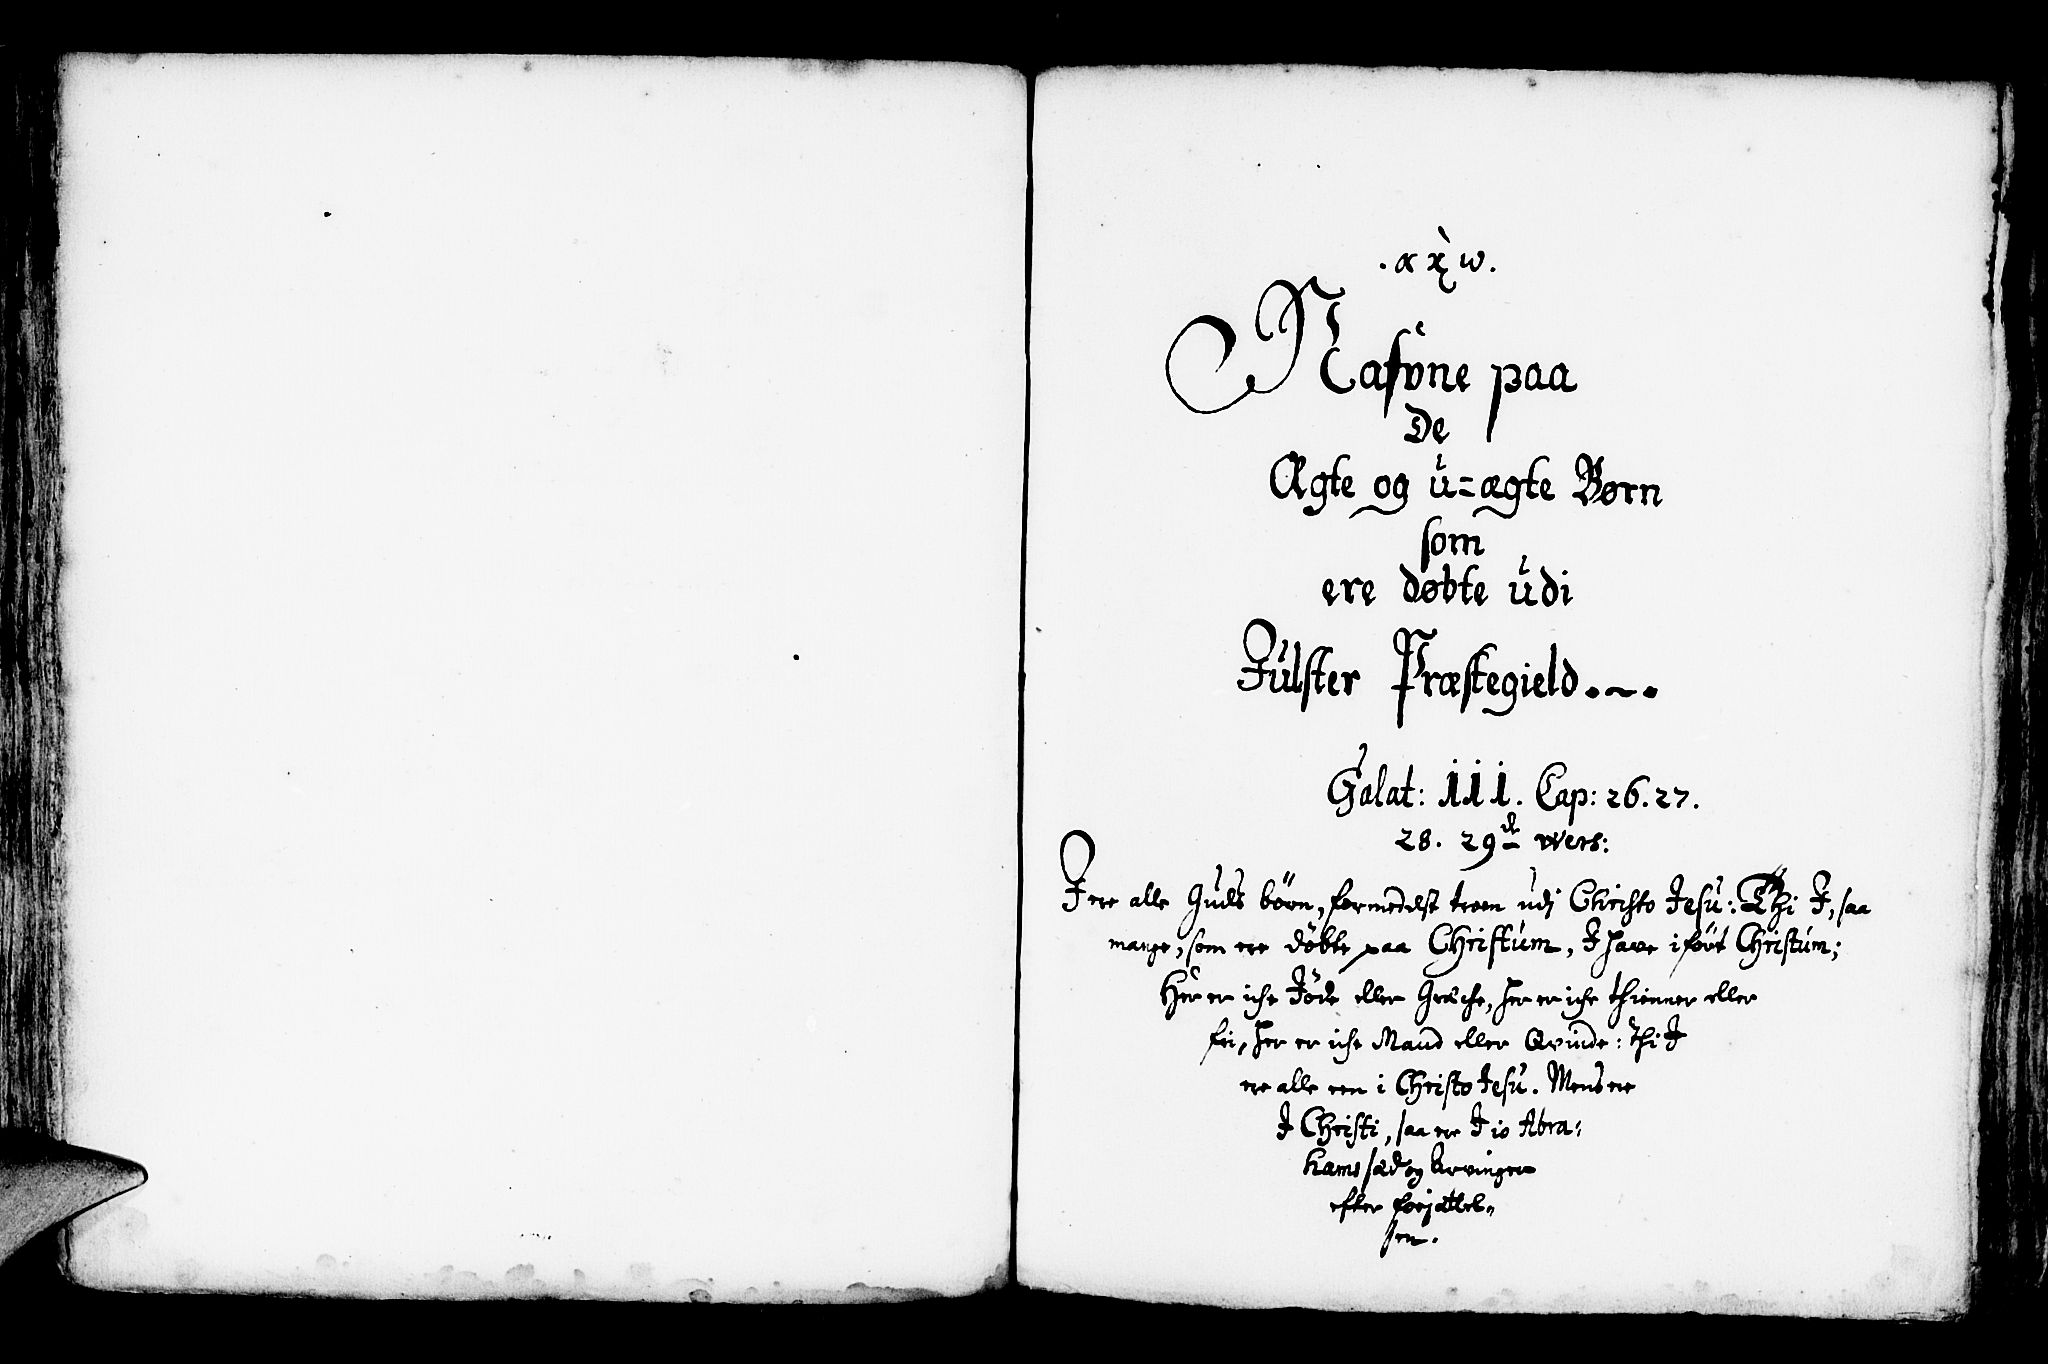 . α χ ω .
Nafvne paa
De
Ægte og u=ægte Børn
som
ere døbte udi
Julster Præstegield . ~ .
Galat: iii. Cap: 26. 27.
28. 29de wers:
J ere alle Guds börn, formedelst troen udj Christo Jesu: Thi J, saa
mange, som ere döbte paa Christum, J have iført Christum;
Her er iche Jöde eller Græche, her er iche thienner eller
fri, her er iche Mand eller Qvinde: thi J
ere alle een i Christo Jesu. Mens ere
J Christi, saa ere J io Abra:
hams sæd og Arvinger
efter forjættel„
sen.